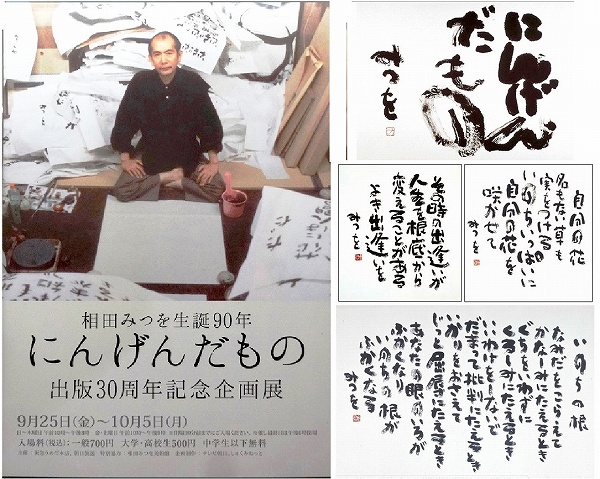 相田みつを生誕90年
にんげんだもの
出版30周年記念企画展
9月25日(金)～10月5日(月)
入場料(税込)：一般700円 大学・高校生500円 中学生以下無料
にんげん
だもの
みつを
その時の出逢いが
人生を根底から
変えることがある
よき出逢いを
みつを
自分の花
名もない草も
実をつける
いのちいっぱいに
自分の花を
咲かせて
みつを
いのちの根
なみだをこらえて
かなしみにたえるとき
ぐちをいわずに
くるしみにたえるとき
いいわけをしないで
だまって批判にたえるとき
いかりをおさえて
じっと屈辱にたえるとき
あなたの眼のいろが
ふかくなり
いのちの根が
ふかくなる
みつを